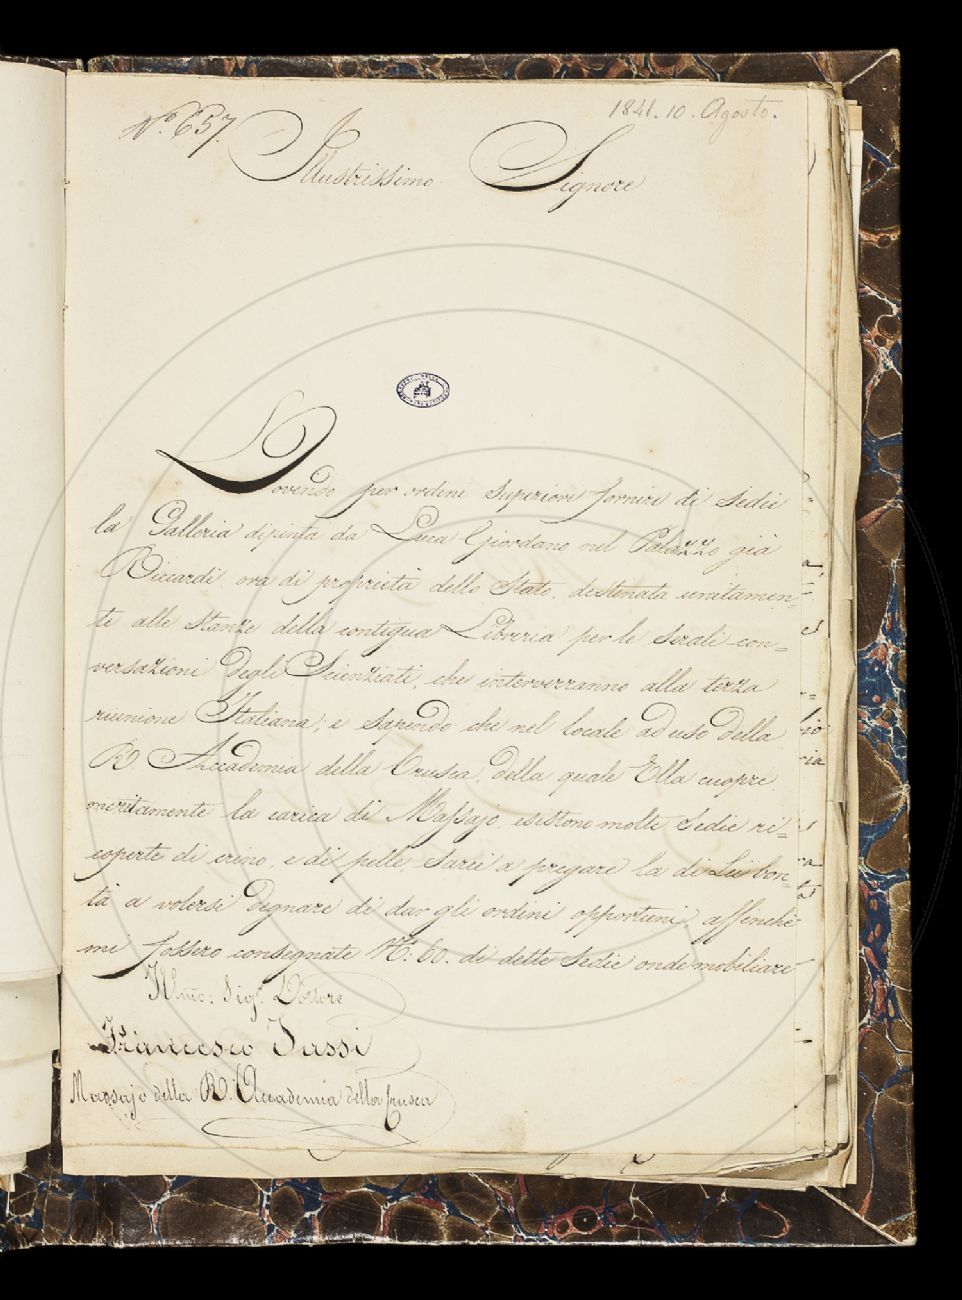 N.° 657.
1841. 10. Agosto.
Illustrissimo Signore
Dovendo per ordini superiori fornire di Sedie
la Galleria dipinta da Luca Giordano nel Palazzo già
Riccardi, ora di proprietà dello Stato, destinata unitamen=
te alle Stanze della contigua Libreria per le serali con=
versazioni degli Scienziati, che interverranno alla terza
riunione Italiana; e sapendo che nel locale ad uso della
R. Accademia della Crusca, della quale Ella cuopre
meritamente la carica di Massajo, esistono molte Sedie ri=
coperte di crino, e di pelle, sarei a pregare la di Lei bon=
tà a volersi degnare di dar gli ordini opportuni, affinchè
mi fossero consegnate N.° 60. di dette Sedie onde mobiliare
Illmo: Sig.r Dottore
Francesco Tassi
Massajo della R. Accademia della Crusca